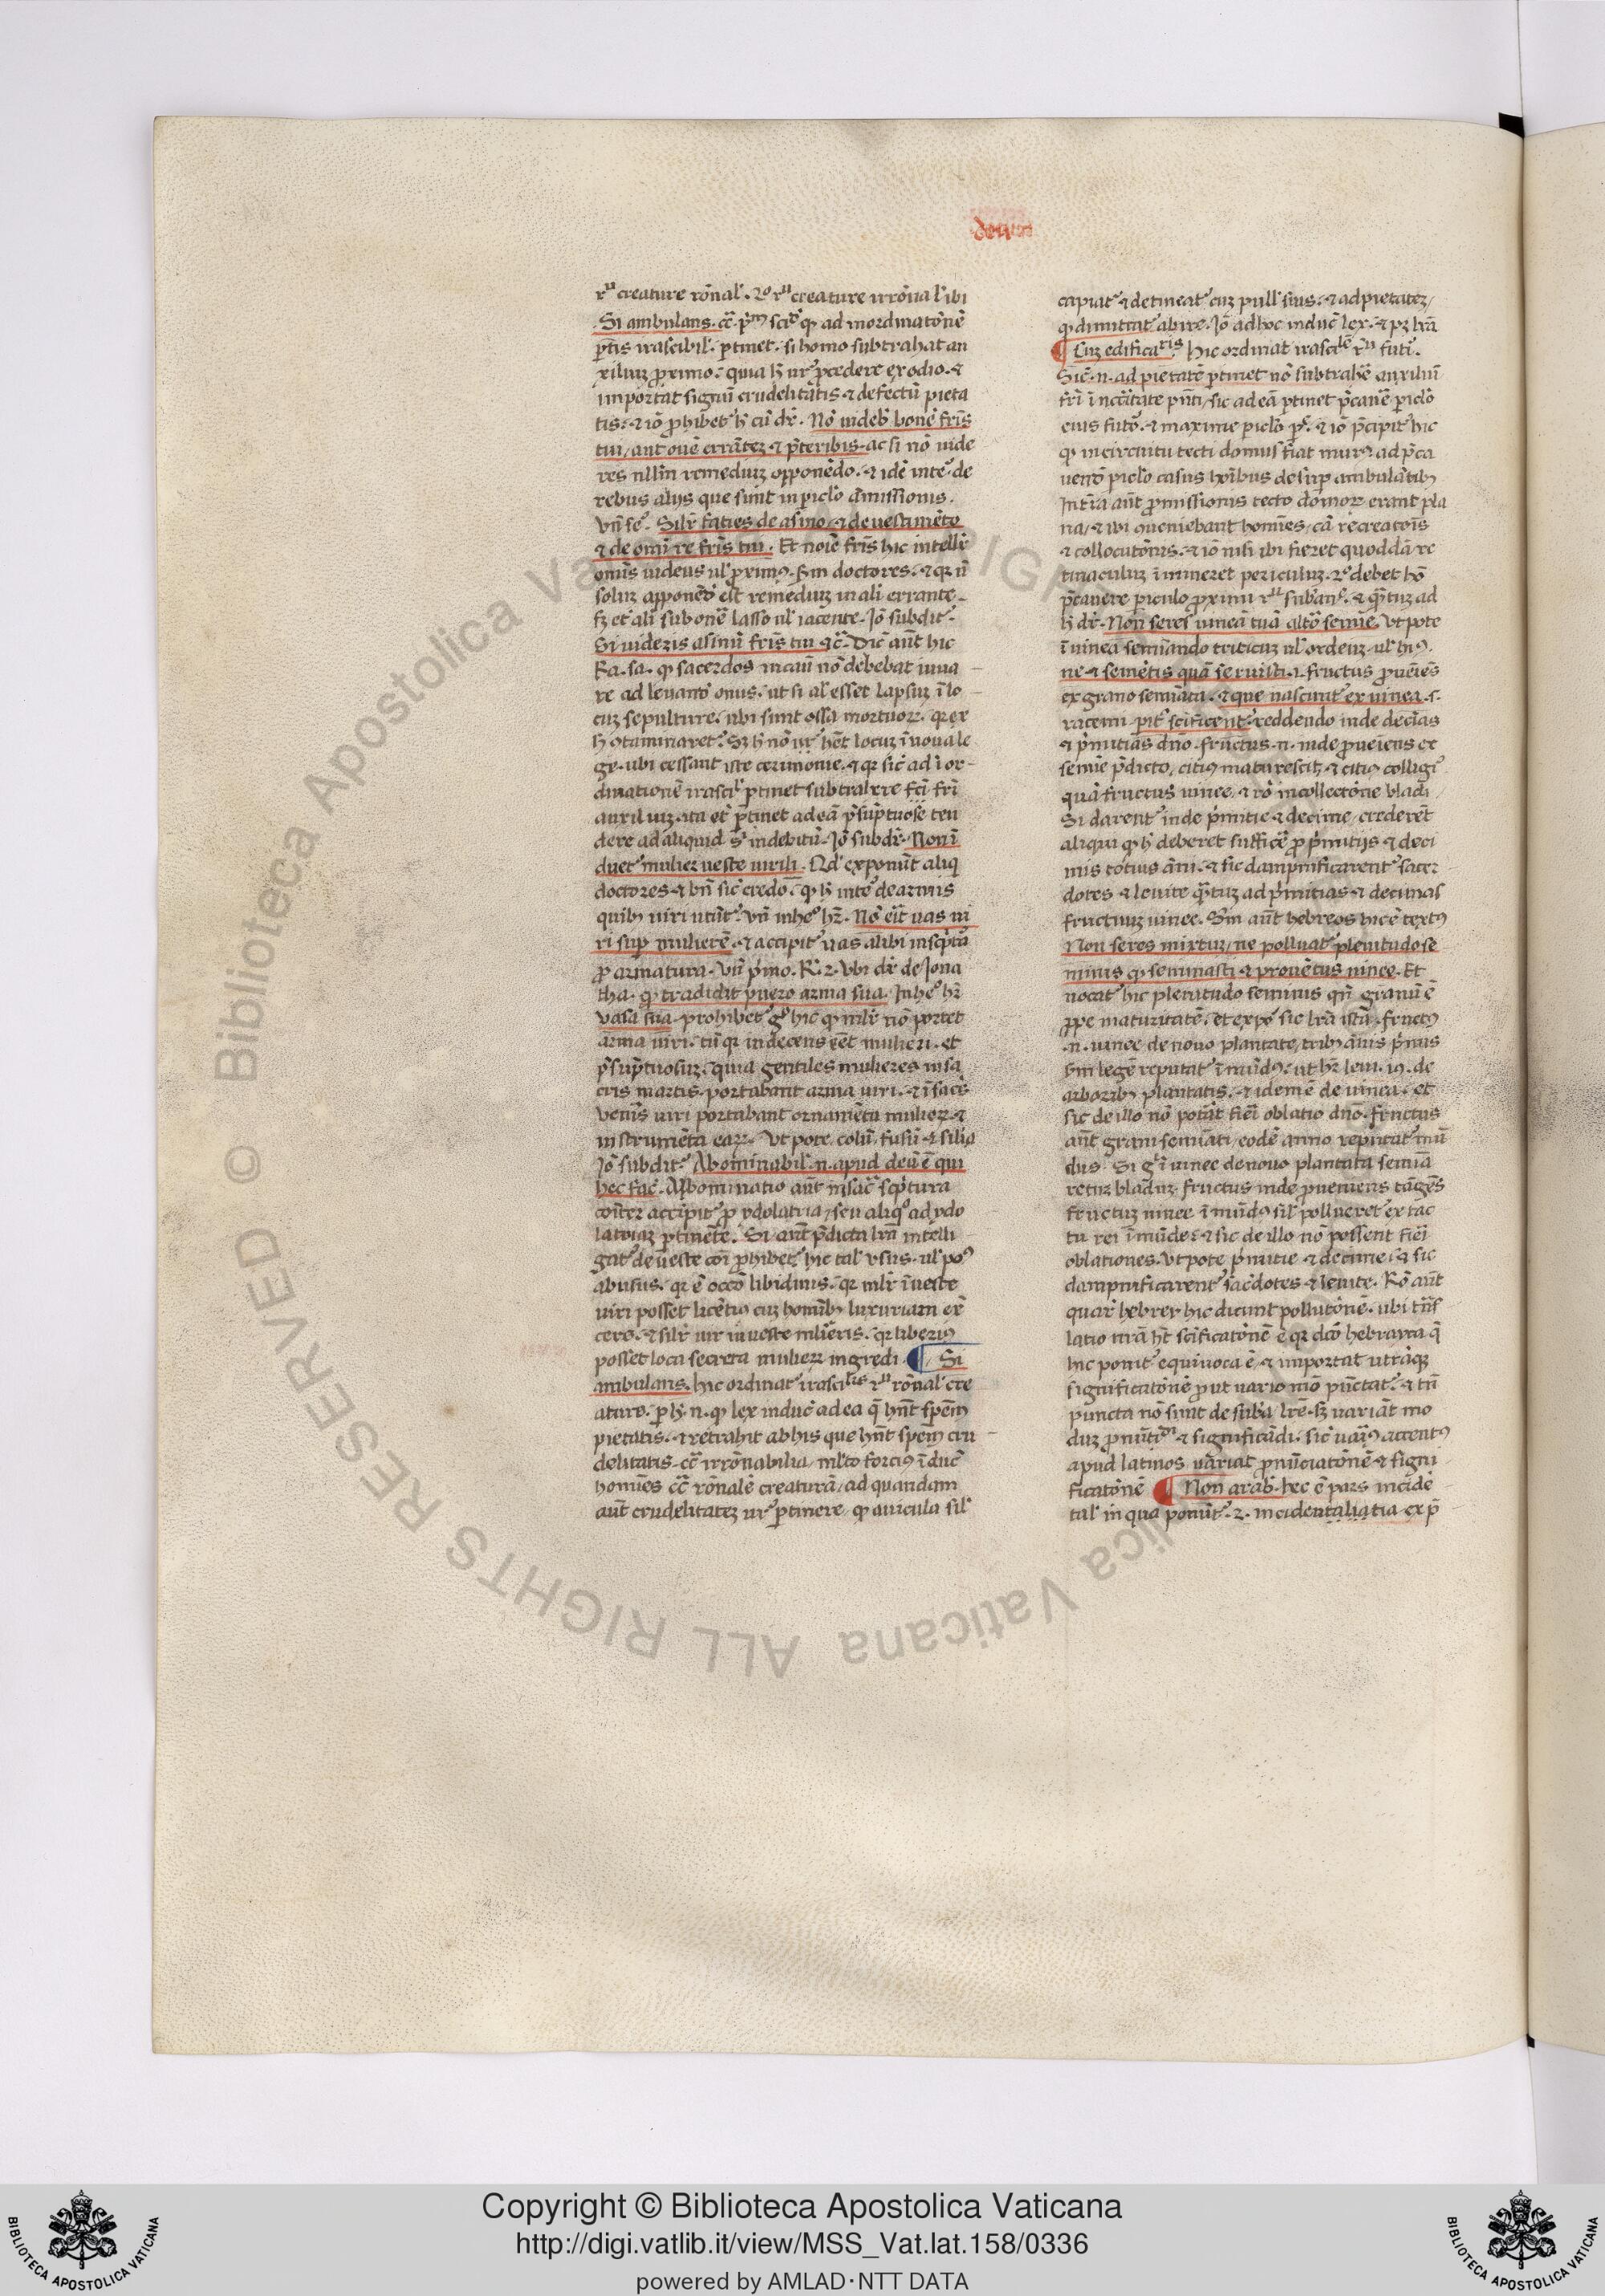 deu
rᵘ creature rōnal᾿. 2º rᵘ creature irrōnal᾿ ibi
Si ambulans. cᷓ. pᵐ sciᵈ qꝫ ad inordinatōnē
ꝑtis irascibil᾿. ꝑtinet. si homo subtrahat au
xilium ꝓximo. quia h᾿ ur᾿ ꝓcedere ex odio. ⁊
importat signū crudelitatis ⁊ defectū pieta
tis. ⁊ iō ꝓhibet᾿ h᾿ cū dr̄. Nō uideb᾿ bouē fr̄is
tui, aut ouē errātez ⁊ ꝑteribis. ac si nō uide
res nllm̄ remedium apponēdo. ⁊ idē inteº de
rebus alijs que sunt in ꝑiclo amissionis.
Vn̄ seº. Silr̄ facies de asino, ⁊ de uestimēto
⁊ de omi re fr̄is tui. Et noīe fr̄is hic intell᾿r
omīs iudeus ul᾿ ꝓximꝰ. ẜm doctores. ⁊ qr̄ n̄
solum apponēd᾿ est remedium in ali errante
sꝫ et᾿ ali sub onē lasso ul᾿ iacente. Jō subdit᾿.
Si uideris asinū fr̄is tui ⁊c̄. Dic᾿ aūt hic
Ra. sa. qꝫ sacerdos in cāu nō debebat iuua
re ad leuand᾿ onus. ut si al᾿ esset lapsum ī lo
cum sepulture. ubi sunt ossa mortuoꝝ. qr ex
h᾿ ꝯtaminaret᾿. Sꝫ h᾿ nō ur᾿ h̄ēt locum ī noua le
ge. ubi cessant iste cerimonie. ⁊ qr sic᾿ ad īor
dinationē irascil᾿ ꝑtinet subtrahere fc̄i fr̄i
auxilium. ita et᾿ ꝑtinet ad eā p̄sūptuose ten
dere ad aliquid s᾿ indebitū. Jō subdr̄. Non ī
duet᾿ mulier ueste uirili. Qd᾿ exponūt aliq
doctores ⁊ bn̄ sic᾿ credo. qꝫ h᾿ inteº de armis
quibꝫ uiri utūt᾿. Vn̄ in heº hr̄. Nō erit uas ui
ri suꝑ mulierē. ⁊ accipit᾿ uas alibi in sc̄ptᵃ
ꝓ armatura. Vn̄ p̄mo. R. 2. Vbi dr̄ de Jona
tha. qꝫ tradidit puero arma sua. In heº hr̄
vasa sua. prohibet᾿ gº hic qꝫ mlr̄ nō portet
arma uiri. tū qr indecens eēt mulieri. et
p̄sūptuosum. quia gentiles mulieres in sa
cris martis. portabant arma uiri. ⁊ ī sac᾿s
Ven᾿is uiri portabant ornamēta mulieꝝ ⁊
instrumēta eaꝝ. Vt pote. colū. fusū ⁊ silia
Jō subdit᾿. Abominabil᾿. n. apud deū ē qui
hec fac᾿. Abominatio aūt in sacᵃ sc̄ptura
cōiter accipit᾿ ꝓ ydolatria, seu aliqº ad ydo
latriam ꝑtinēte. Si aūt p̄dicta lr̄a intelli
gat᾿ de ueste cōi ꝓhibet᾿ hic tal᾿ usus. ul᾿ poº
abusus. qr ē occō libidinis. qr mlr̄ ī ueste
uiri posset licētiꝰ cum homībꝫ luxuriam ex᾿
cere. ⁊ silr̄ uir in ueste mlieris. qr liberiꝰ
posset loca secreta mulieꝝ ingredi. ¶ Si
ambulans. hic ordinat irascilᵉᵐ rᵘ rōnal᾿ cre
ature. ꝑ h᾿. n. qꝫ lex induc᾿ ad ea q̄ hn̄t spēm
pietatis. ⁊ retrahit ab his que hn̄t spēm cru
delitatis. cᷓ irrōnabilia, mlto forciꝰ īduc᾿
homīes cᷓ rōnalē creaturā, ad quandam
aūt crudelitatez ur᾿ ꝑtinere, qꝫ auicula sil᾿
capiat᾿ ⁊ detineat᾿ cum pull᾿ suis. ⁊ ad pietatez,
qꝫ dimittat᾿ abire. Jō ad hoc induc᾿ lex. ⁊ pꝫ lr̄a
¶ Cum edificaᵛᵉʳⁱˢ. hic ordinat irascilᵉ rᵘ futi.
Sic᾿. n. ad pietatē ꝑtinet nō subtrahē auxiliū
fr̄i ī nccitate pn̄ti, sic ad eā ꝑtinet p̄cauē ꝑiclo
eius futº. ⁊ maxime ꝑiclo ꝑ. ⁊ iō p̄cipit᾿ hic
qꝫ in circuitu tecti domus fiat murꝰ ad p̄ca
uend᾿ ꝑiclo casus hoībus desuꝑ ambulātibꝫ
In tr̄a aūt ꝓmissionis tecto domoꝝ erant pla
na, ⁊ ibi ꝯueniebant homīes, cā recreatōis
⁊ collocutōnis. ⁊ iō nisi ibi fieret quoddā re
tinaculum īmineret periculum. 2º debet hō
p̄cauere ꝑiculo ꝓximi rᵘ subᵃ. ⁊ q̄tum ad
h᾿ dr̄. Non seres uineā tuā altº semīe. Vt pote
ī uinea semīando triticum ul᾿ ordeum. ul᾿ hꝰ.
ne ⁊ semētis quā seruisti. i. fructus ꝓueīes
ex grano semīata. ⁊ que nascunt᾿ ex uinea. s.
racemi. ꝑit᾿ scificent᾿. reddendo inde decīas
⁊ p̄mitias dn̄o. fructus. n. inde ꝓueīens ex
semīe p̄dicto, citiꝰ maturescit, ⁊ citiꝰ colligi᾿
quā fructus uinee, ⁊ iō in collectōne bladi
Si darent᾿ inde p̄mitie ⁊ decime, crederēt
aliqui qꝫ h᾿ deberet sufficē ꝓ p̄mitijs ⁊ deci
mis totius āni. ⁊ sic dampnificarent᾿ sacer
dotes ⁊ leuite q̄tum ad p̄mitias ⁊ decimas
fructuum uinee. Sm̄ aūt hebreos hic ē textꝰ
Non seres mixtum, ne polluat᾿ plenitudo se
minis qꝫ seminasti ⁊ prouētus uinee. Et
uocat᾿ hic plenitudo seminis qn̄ granū ē
ꝓpe maturitatē. et expoº sic lr̄a istā. fructꝰ
.n. uinee de nouo plantate, tribꝫ ānis p̄mis
ẜm legē reputat᾿ ī mūdꝰ. ut hr̄ leui. 19. de
arboribꝫ plantatis. ⁊ idem ē de uinea. et
sic de illo nō potāt fieri oblatio dn̄o. fructus
aūt grani semīati, eodē anno reputat᾿ mū
dus. Si gº ī uinee de nouo plantata semīa
retur bladum, fructus inde ꝓueniens tāgēs
fructum uinee ī mūdꝰ sil᾿ pollueret᾿ ex tac
tu rei ī mūde. ⁊ sic de illo nō possent fieri
oblationes. Vt pote p̄mitie ⁊ decime. ⁊ sic
dampnificarent᾿ sac᾿dotes ⁊ leuite. Rō aūt
quar᾿ hebrei hic dicunt pollutōnē. ubi tn̄s
latio nr̄a h̄t scificatōnē ē qr dcō hebrayca q̄
hic ponit᾿ equiuoca ē, ⁊ importat utrāqꝫ
significatōnē ꝓut uario mō pūctat᾿. ⁊ tn̄
puncta nō sunt de subᵃ lr̄e. sꝫ uariāt mo
dum ꝓnūtiᵈⁱ ⁊ significādi. sic᾿ uarꝰ accentꝰ
apud latinos uariat ꝓnūciatōnē ⁊ signi
ficatōnē ¶ Non arab᾿. hec ē pars incidē
tal᾿ in qua ponūt᾿. 2. incidentalia tīa ex p̄
Copyright © Biblioteca Apostolica Vaticana
http://digi.vatlib.it/view/MSS_Vat.lat.158/0336
powered by AMLAD·NTT DATA